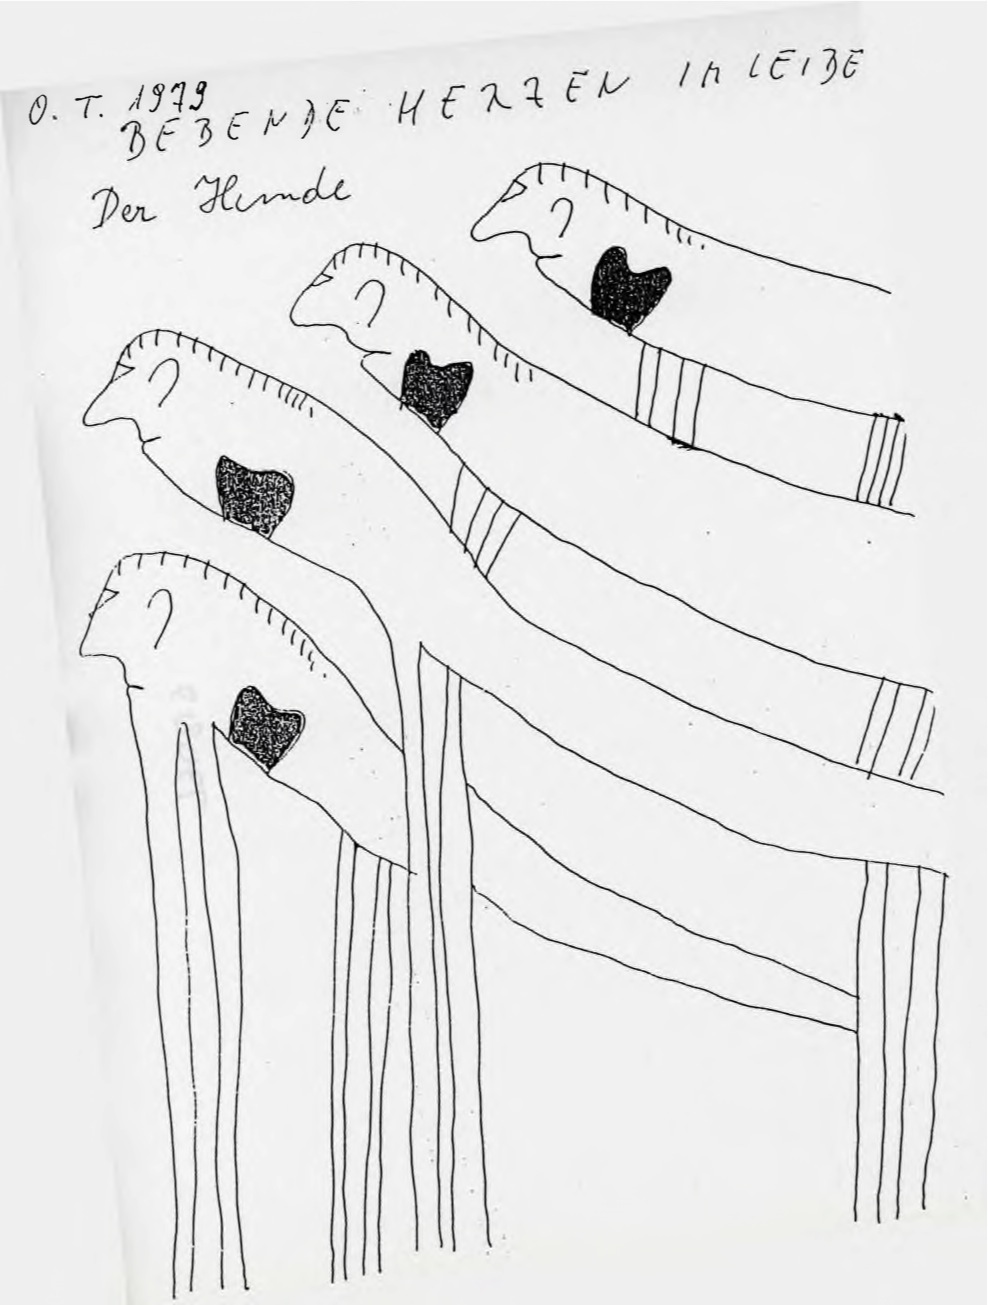 O. T. 1979
BEBENDE HERZEN IM LEIBE
Der Hunde